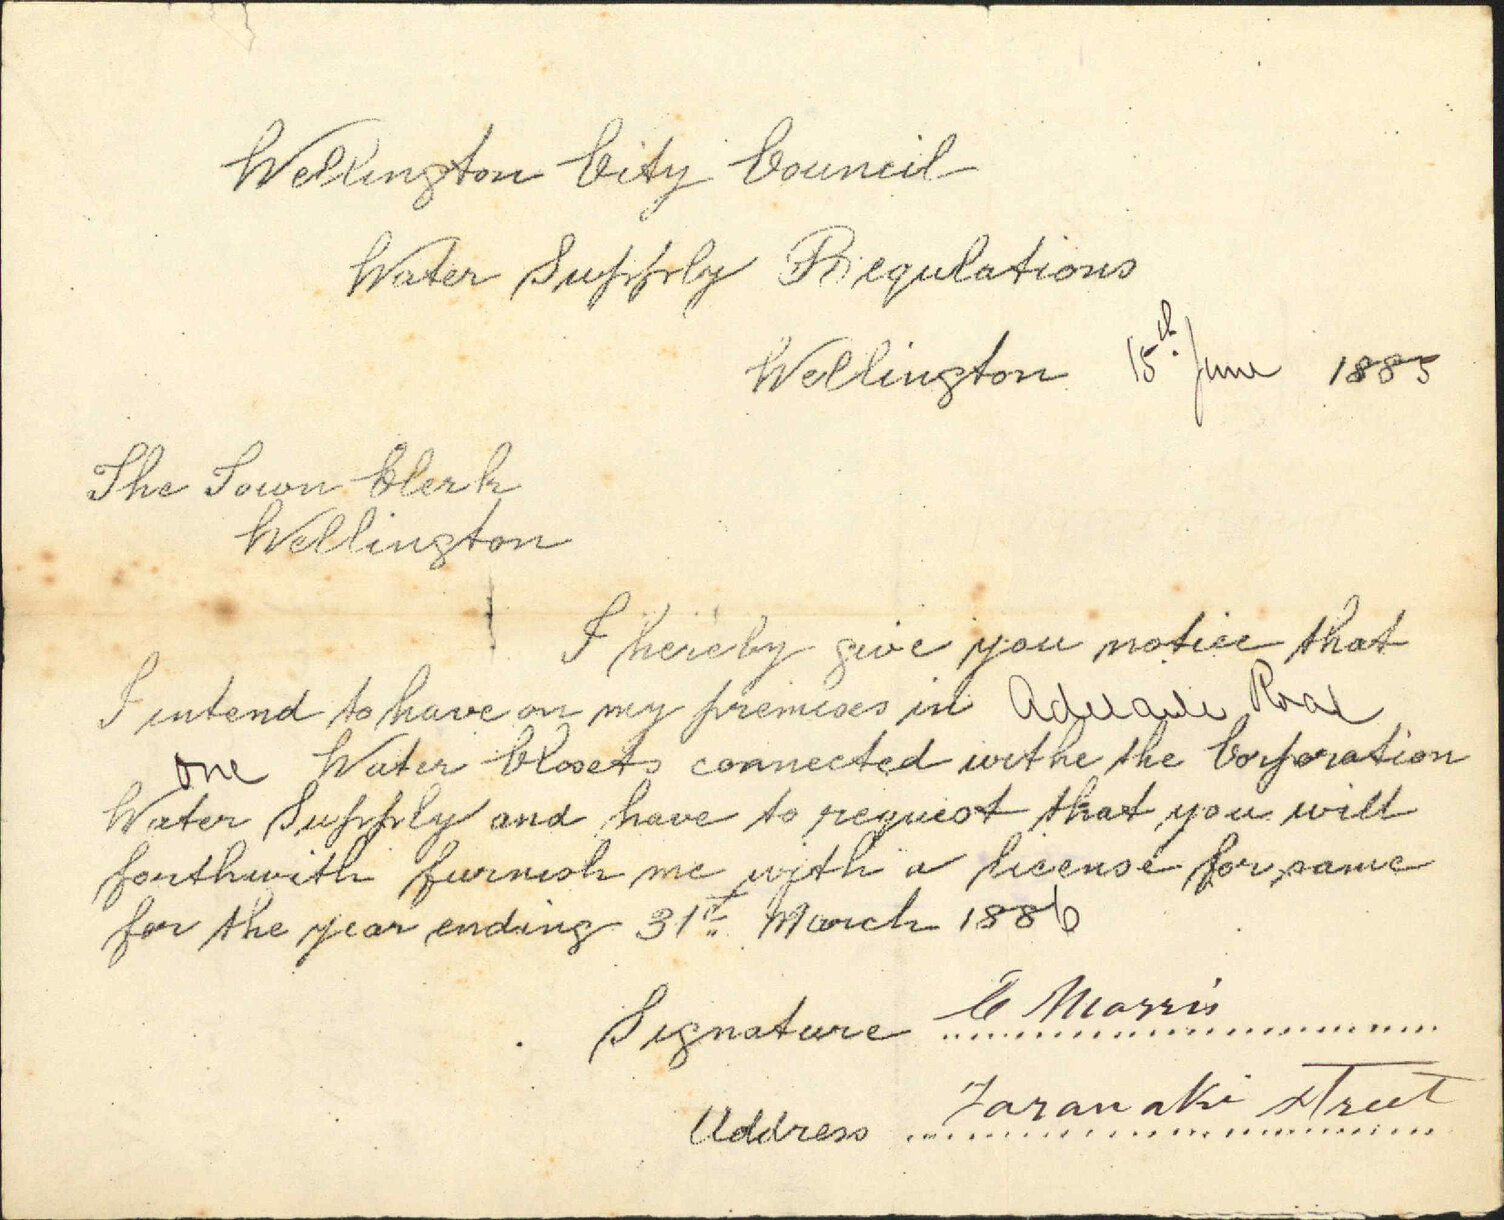 Wellington City Council
Water Supply Regulations
Wellington 15th June 1885
The Town Clerk
Wellington
I hereby give you notice that
I intend to have on my premises in Adelaide Road
one Water Closets connected withe the Corporation
Water Supply and have to request that you will
forthwith furnish me with a license for same
for the year ending 31st March 1886
Signature C Morris
Address Taranaki Street